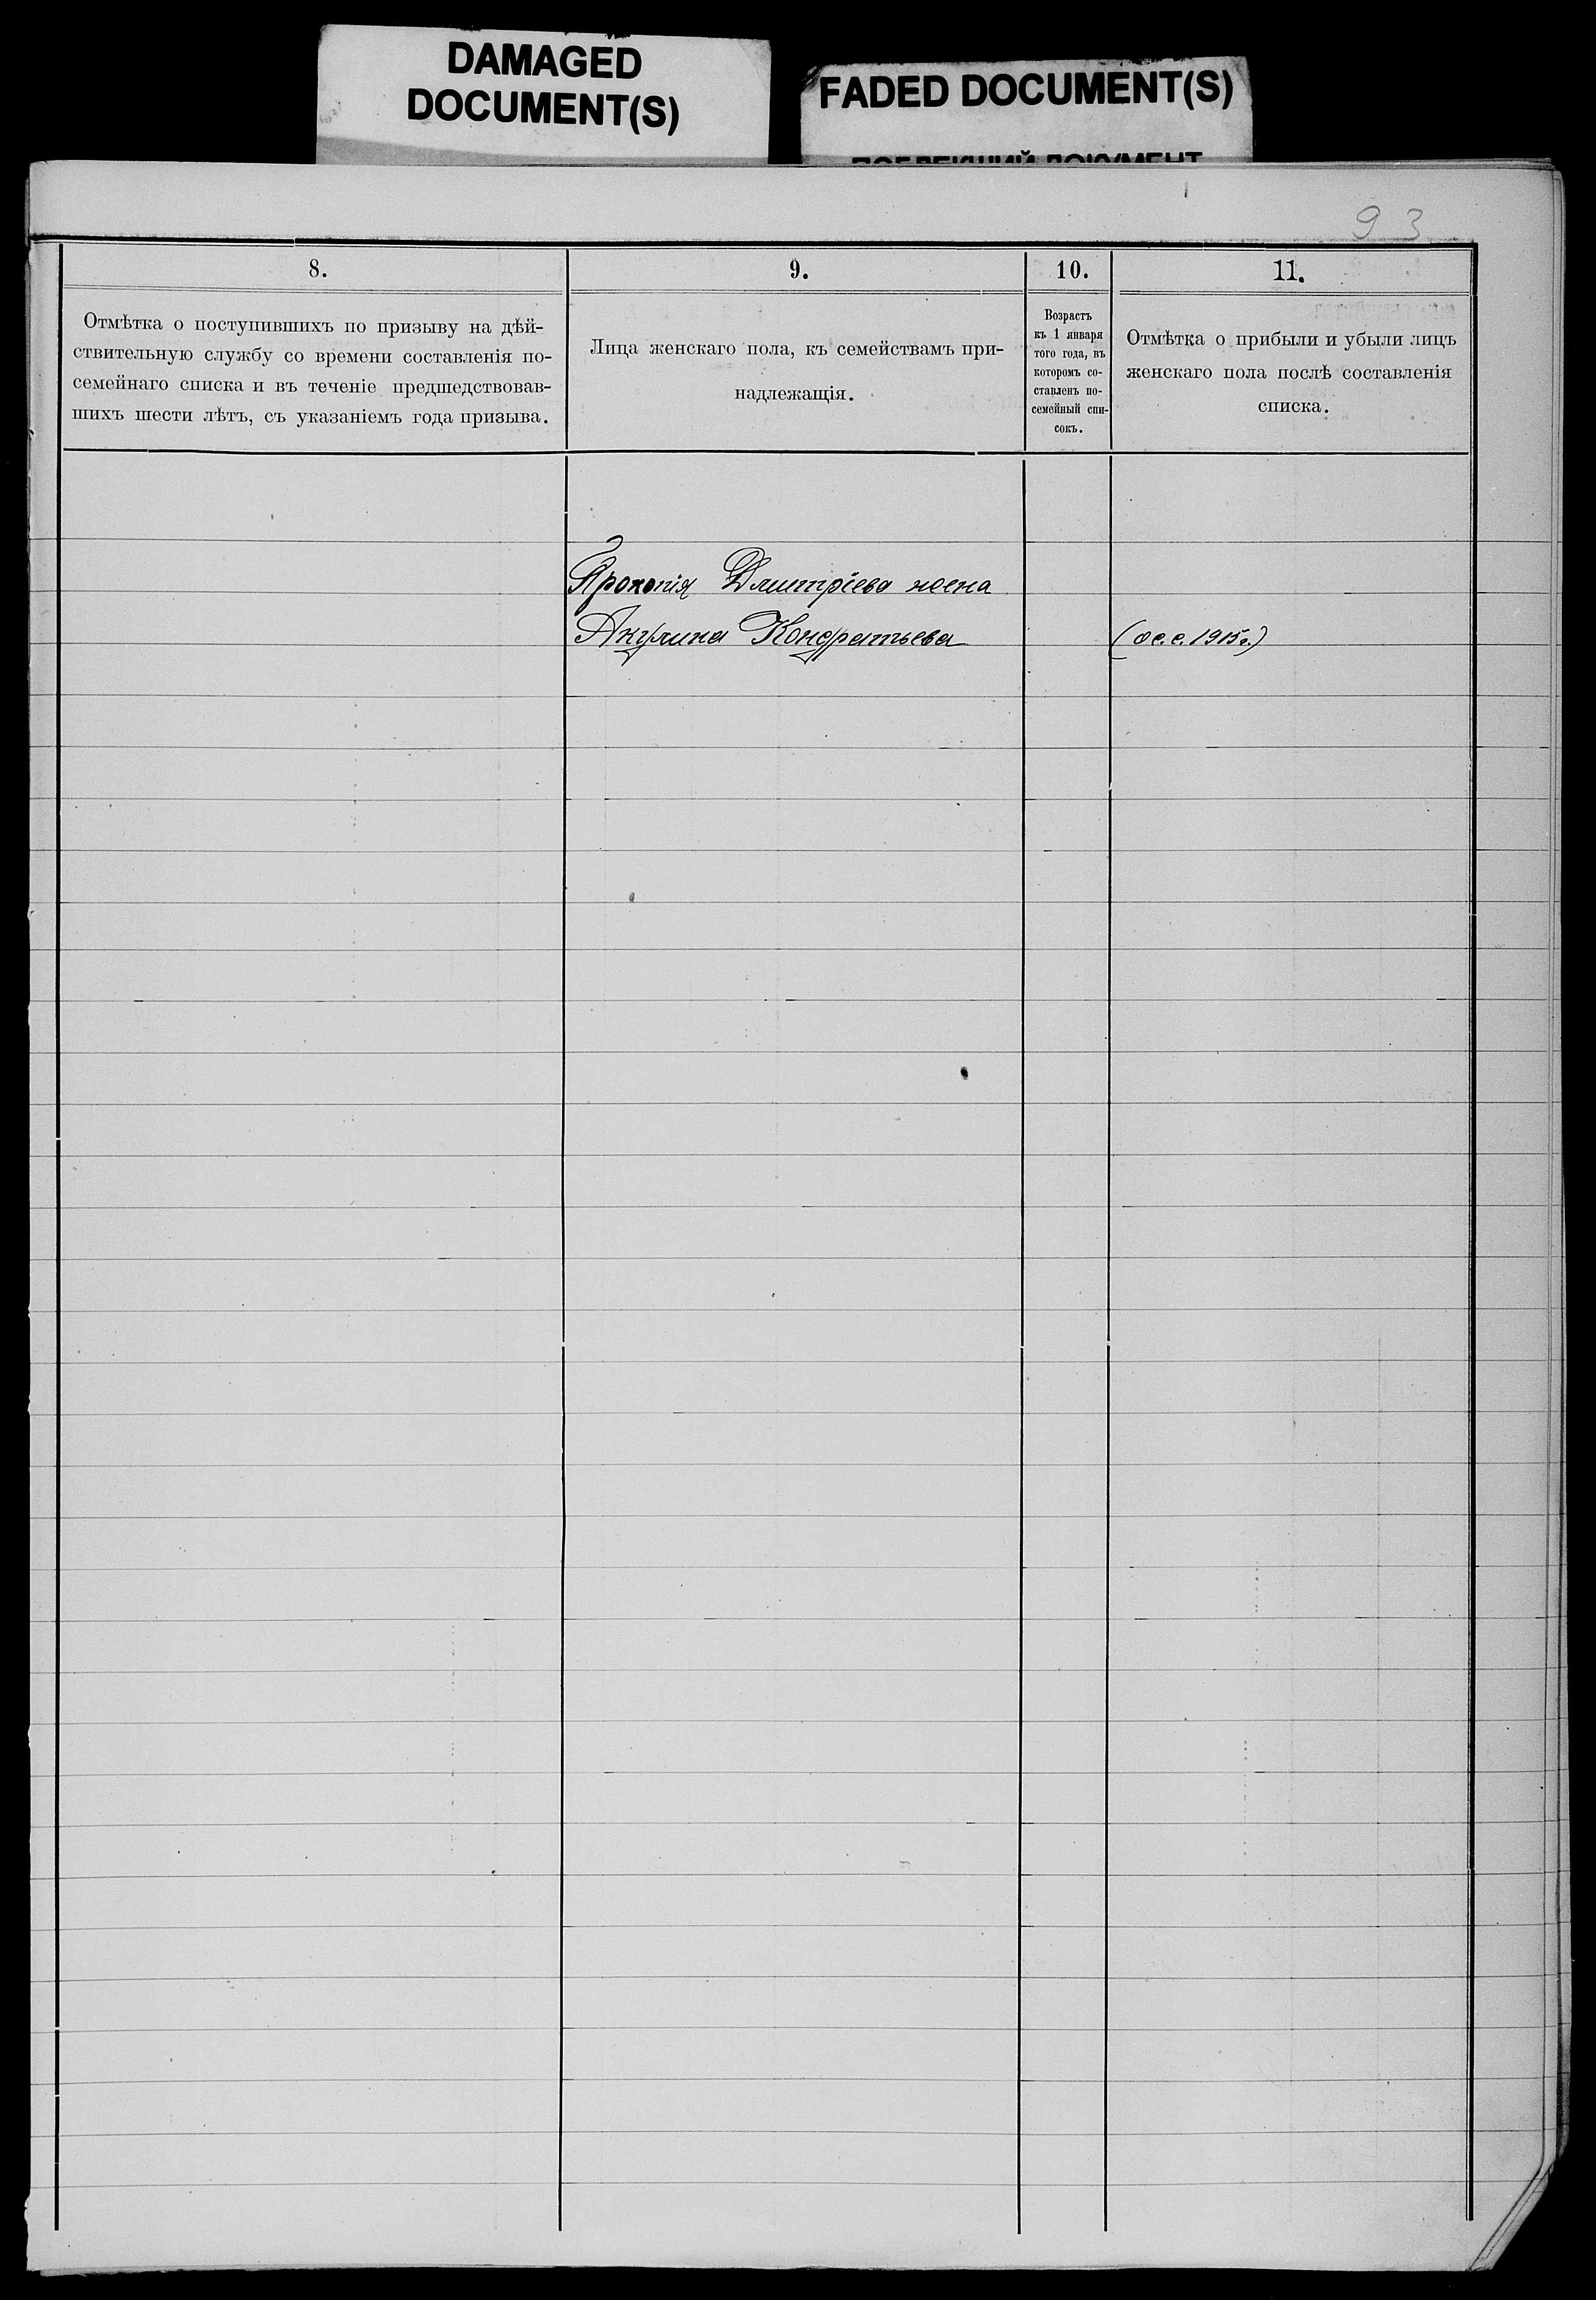 DAMAGED
DOCUMENT(S)
FADED DOCUMENT(S)
ПОБЛЕКШИЙ ДОКУМЕНТ
93
8.
9.
10.
11.
Отмѣтка о поступившихъ по призыву на дѣй-
ствительную службу со времени составленія по-
семейнаго списка и въ теченіе предшедствовав-
шихъ шести лѣтъ, съ указаніемъ года призыва.
Лица женскаго пола, къ семействамъ при-
надлежащія.
Возрастъ
къ 1 января
того года, въ
которомъ со-
ставленъ по-
семейный спи-
сокъ.
Отмѣтка о прибыли и убыли лицъ
женскаго пола послѣ составленія
списка.
Прокопія Дмитріева жена
Акулина Кондратьева
1915г.)